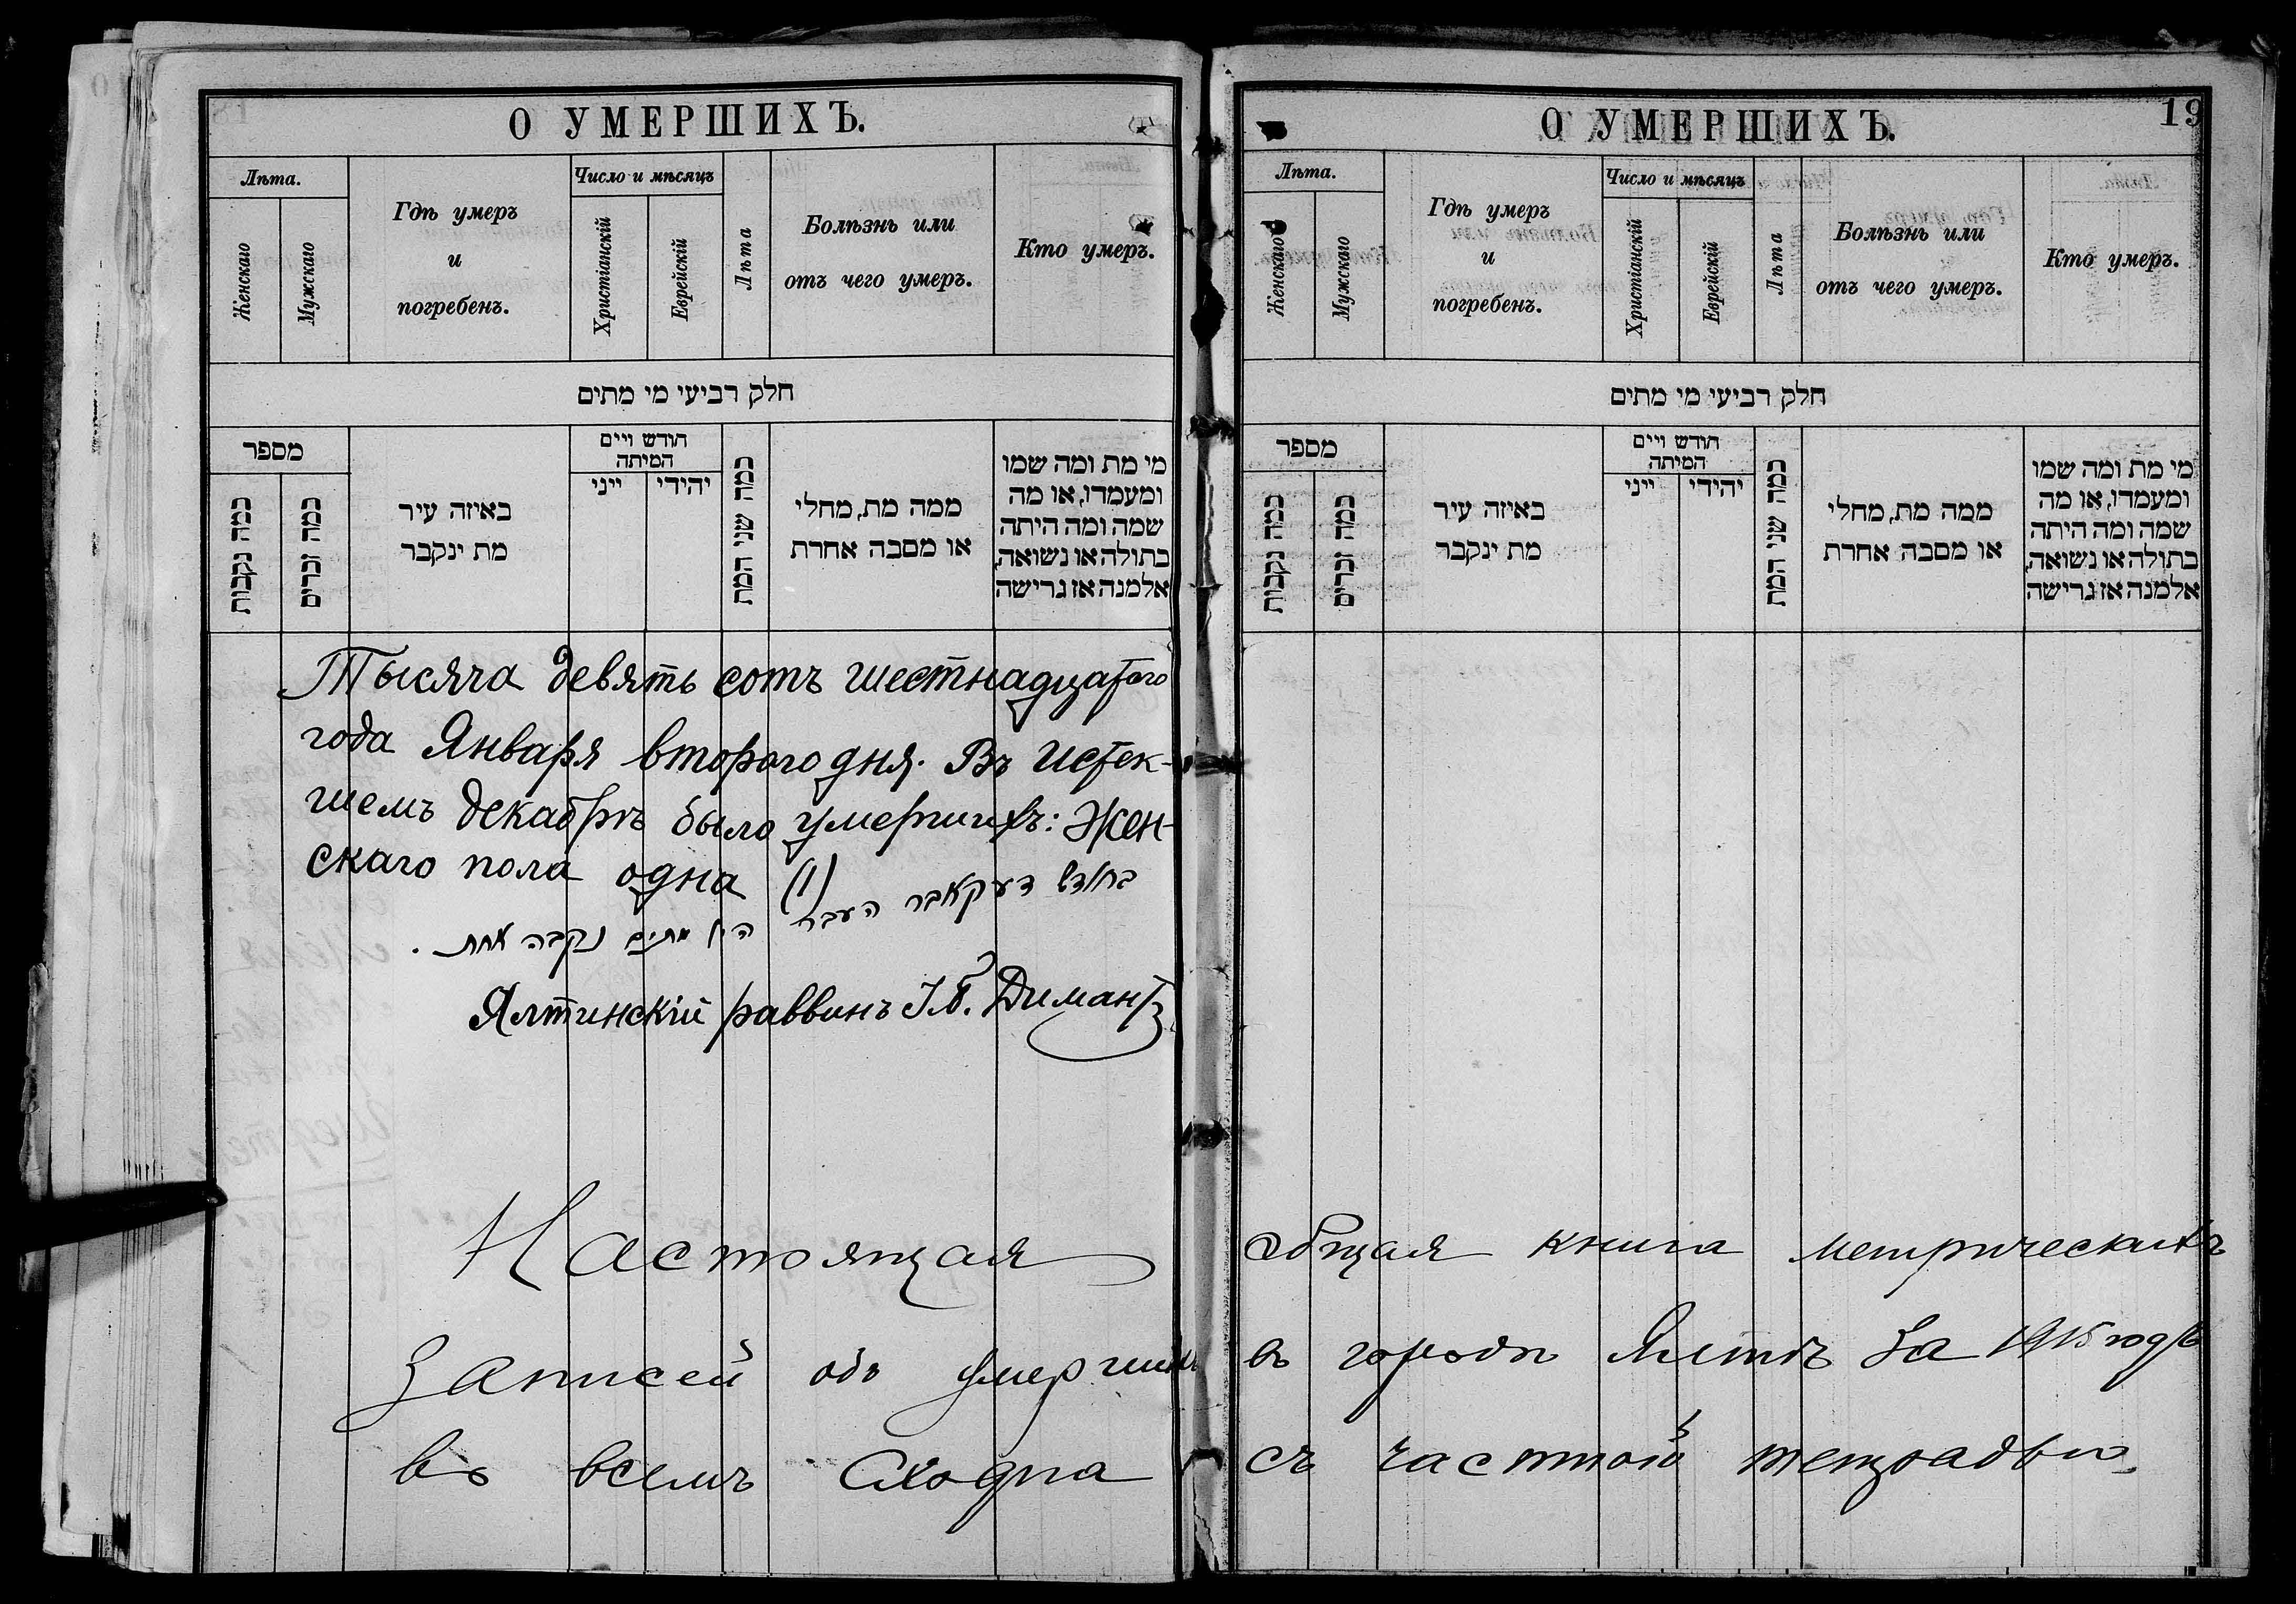 О УМЕРШИХЪ.
Лѣта.
Женскаго
Мужскаго
Гдѣ умеръ
и
погребенъ.
Число и мѣсяцъ
Христіанскій
Еврейскій
Лѣта
Болѣзнь или
отъ чего умеръ.
Кто умеръ.
חלק רביעי מי מתים
מספר
כמה נקבות
כמה זכרים
באיזה עיר
מת ינקבר
חודש ויים
המיתה
ייני
יהודי
כמה שני המת
ממה מת, מחלי
או מסבה אחרת
מי מת ומה שמו
ומעמדו, או מה
שמה ומה היתה
בתולה או נשואה,
אלמנה אז גרישה
Тысяча девять сотъ шестнадцатого
года Января второго дня. Въ истек-
шемъ декабрѣ было умершихъ: Жен-
скаго пола одна (1)
בחודש דעקאבר העבר
היו מתים נקבה אחת .
Ялтинскій раввинъ І.Б. Димантъ
Настоящая
записей объ умершихъ
во всемъ сходна
О УМЕРШИХЪ.
19
Лѣта.
Женскаго
Мужскаго
Гдѣ умеръ
и
погребенъ.
Число и мѣсяцъ
Христіанскій
Еврейскій
Лѣта
Болѣзнь или
отъ чего умеръ.
Кто умеръ.
חלק רביעי מי מתים
מספר
כמה נקבות
כמה זכרים
באיזה עיר
מת ינקבר
חודש ויים
המיתה
ייני
יהודי
כמה שני המת
ממה מת, מחלי
או מסבה אחרת
מי מת ומה שמו
ומעמדו, או מה
שמה ומה היתה
בתולה או נשואה,
אלמנה אז גרישה
общая книга метрическихъ
въ городѣ Ялтѣ за 1915 годъ
съ частной тетрадью